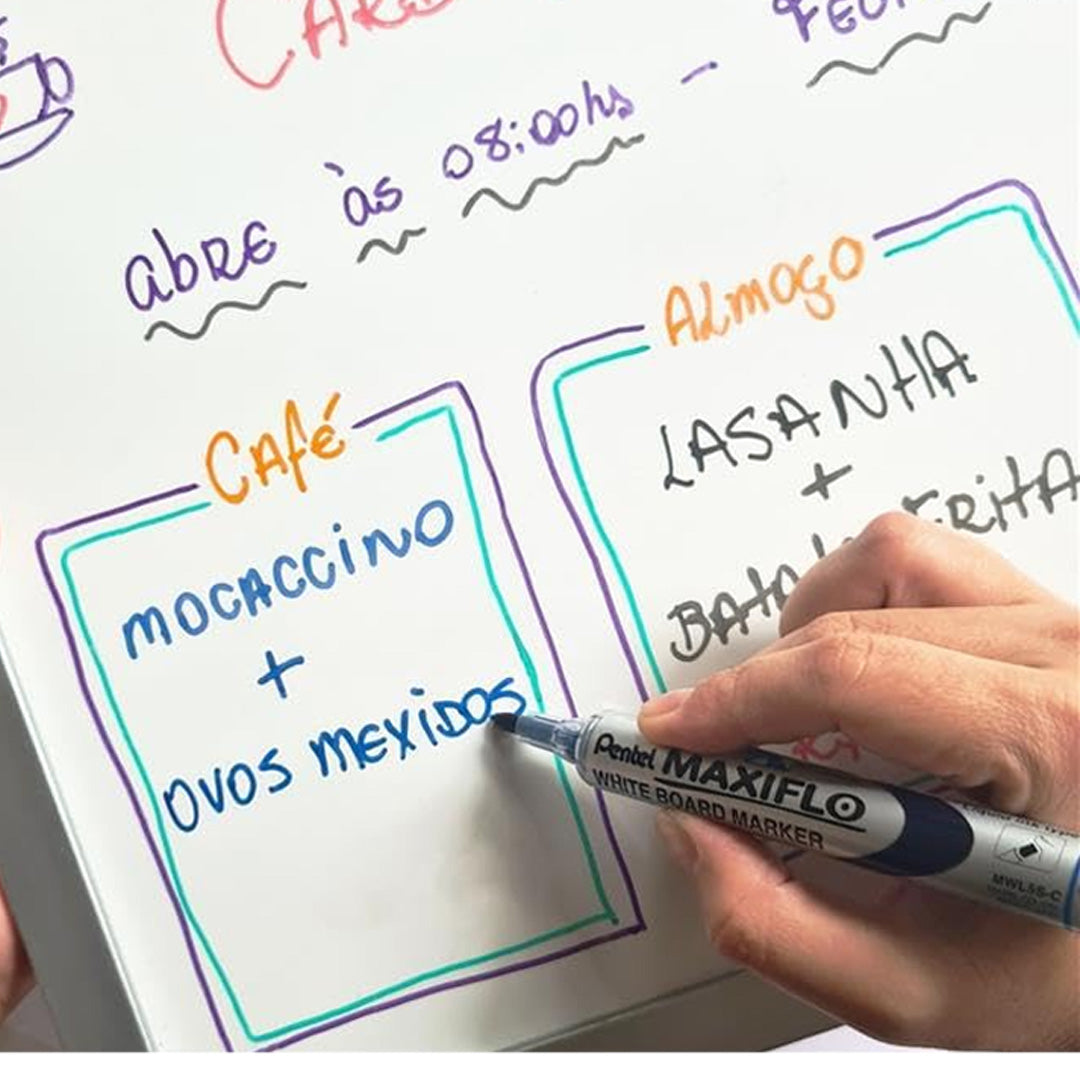 abRE às 08:00hs -
Café
MOCACCINO
+
OVOS MEXIDOS
ALMOÇO
LASANHA
+
Pentel MAXIFLO
WHITE BOARD MARKER
MWL5S-C